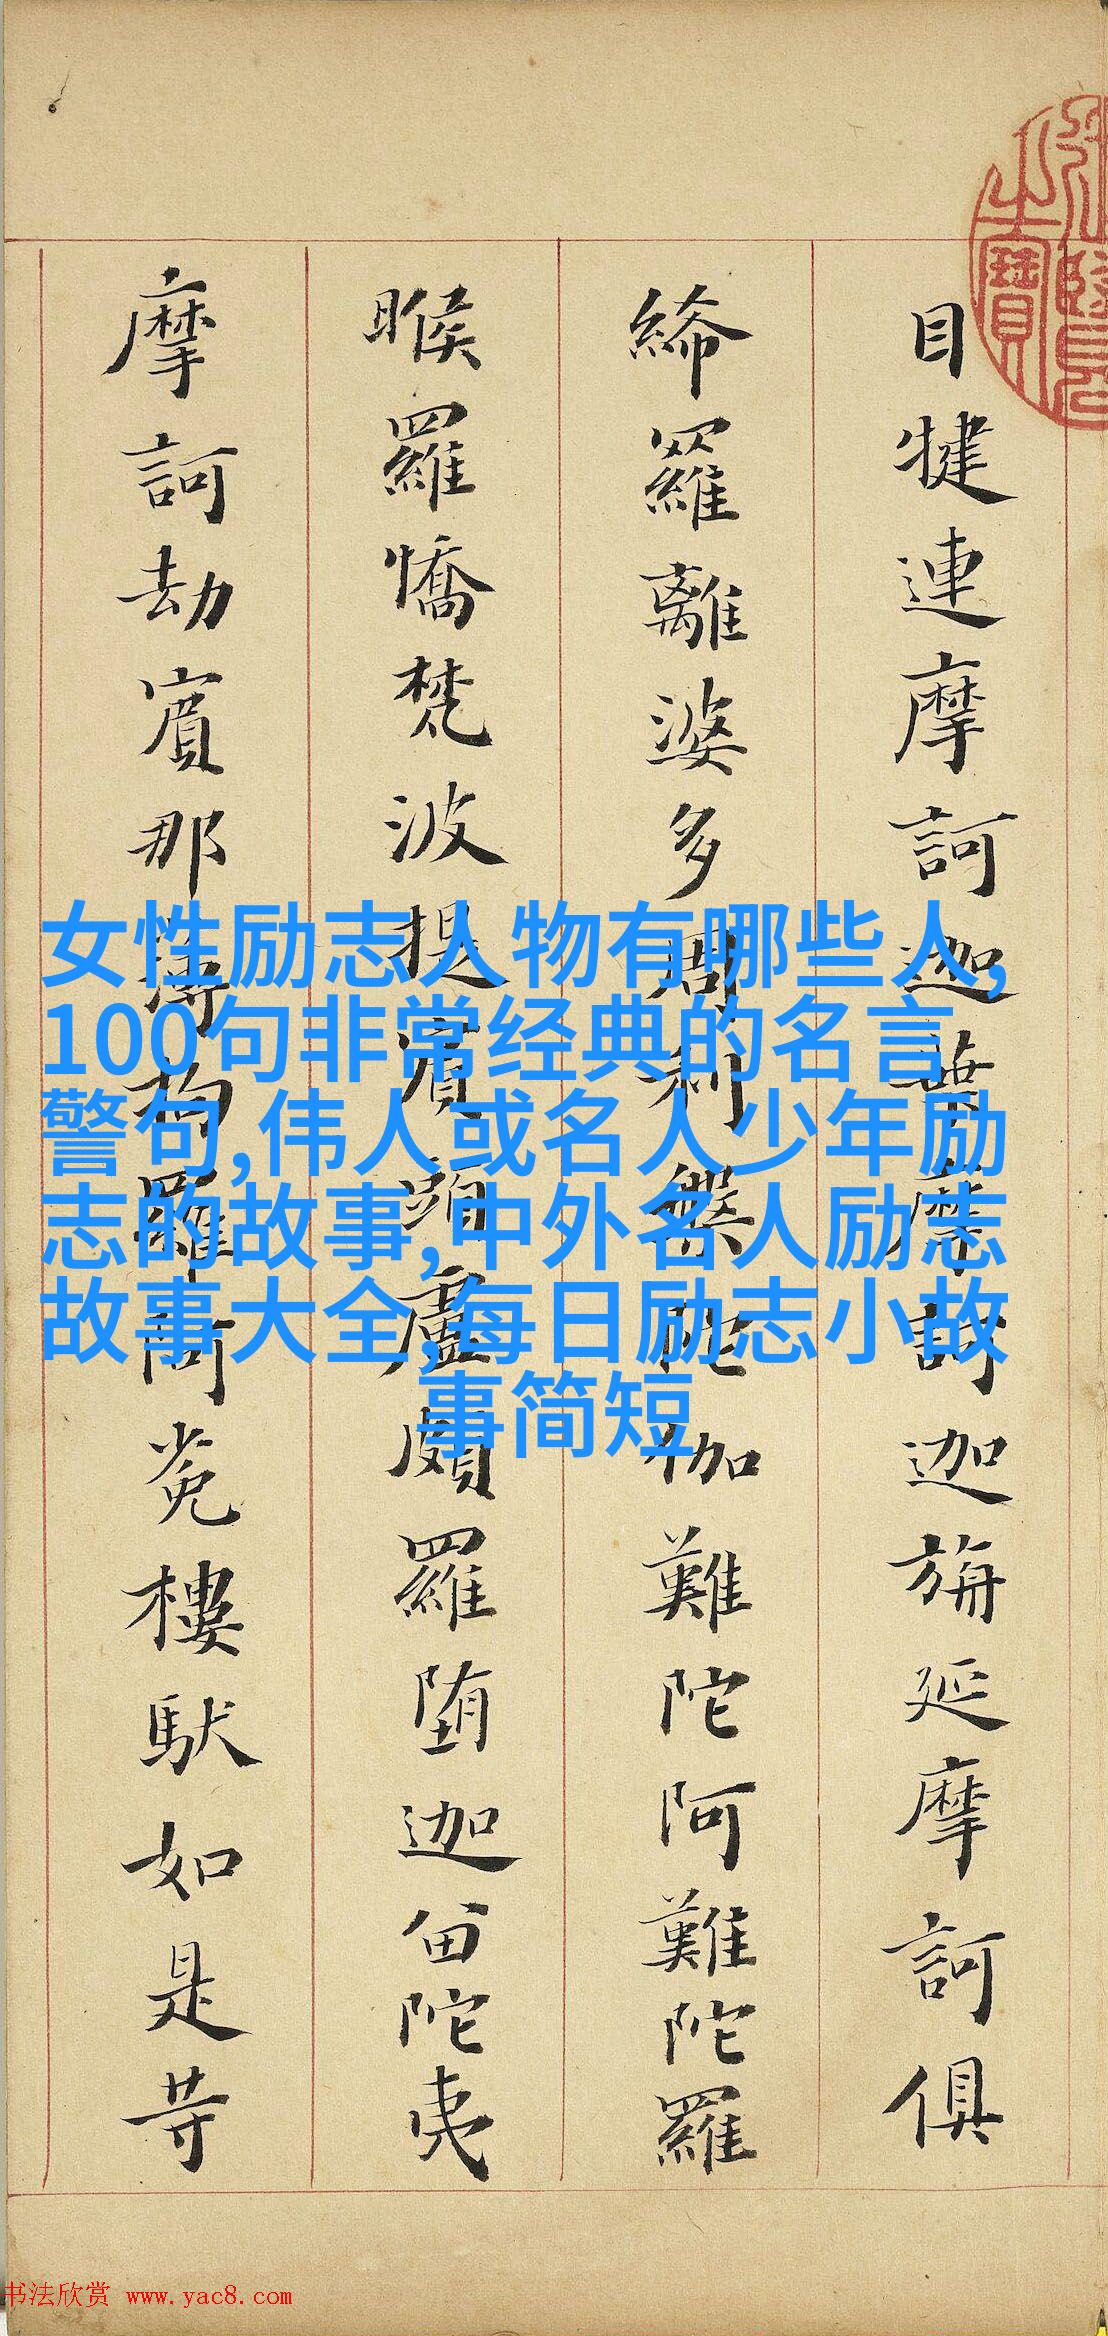 目犍連摩訶迦葉摩訶迦旃延摩訶俱
絺羅離婆多周利槃陀伽難陀阿難陀羅
睺羅憍梵波提賓頭盧頗羅堕迦留陀夷
摩訶劫賓那薄拘羅阿㝹樓馱如是等
之寶
女性励志人物有哪些人,
100句非常经典的名言
警句,伟人或名人少年励
志的故事,中外名人励志
故事大全,每日励志小故
事简短
书法欣赏 www.yac8.com